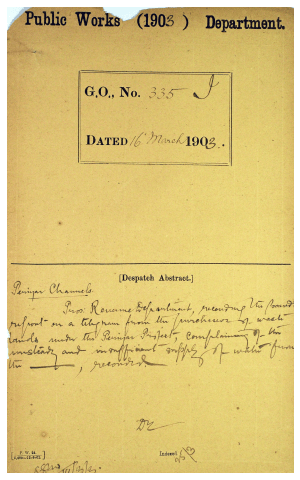 Public Works (1903) Department.
G.O., No. 335 I
DATED 16 March 1903.
[Despatch Abstract.]
Periyar Channels
Pros. Revenue Department, recording the Board's
report on a telegram from the purchaser of waste
lands under the Periyar Project, complaining of the
unsteady and insufficient supply of water from
the , recorded
Indexed